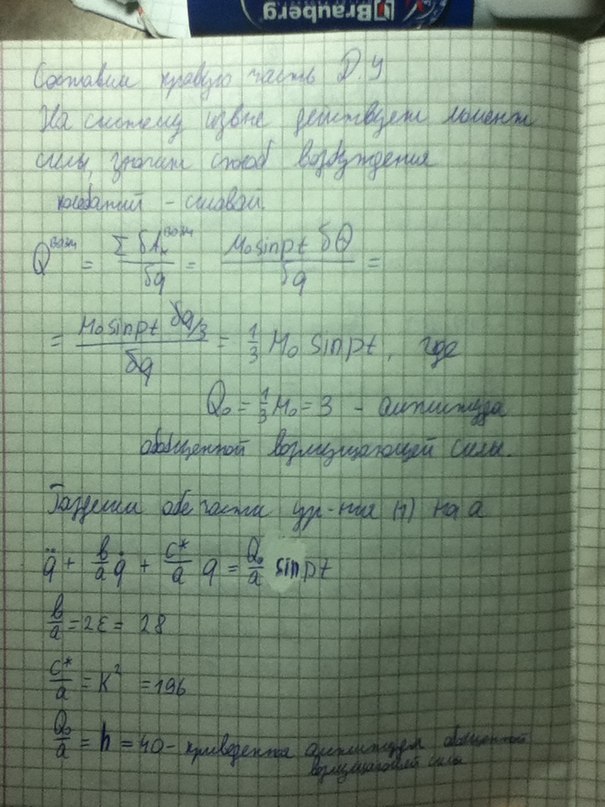 Brauberg
Составим правую часть Д.У
На систему извне действует момент
силы, значит способ возбуждения
колебаний – силовой.
Q^возм = Σ δA_к^возм / δq = M₀ sin pt δθ / δq =
= M₀ sin pt δq/3 / δq = 1/3 M₀ sin pt, где
Q₀ = 1/3 M₀ = 3 – амплитуда
обобщенной возмущающей силы.
Разделим обе части ур-ния (1) на a
q̈ + b/a q̇ + c*/a q = Q₀/a sin pt
b/a = 2ε = 28
c*/a = K² = 196
Q₀/a = h = 40 – приведенная амплитуда обобщенной
возмущающей силы